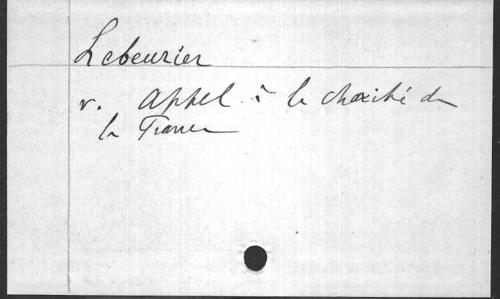 Lebeurier
v. Appel à la charité de
la France